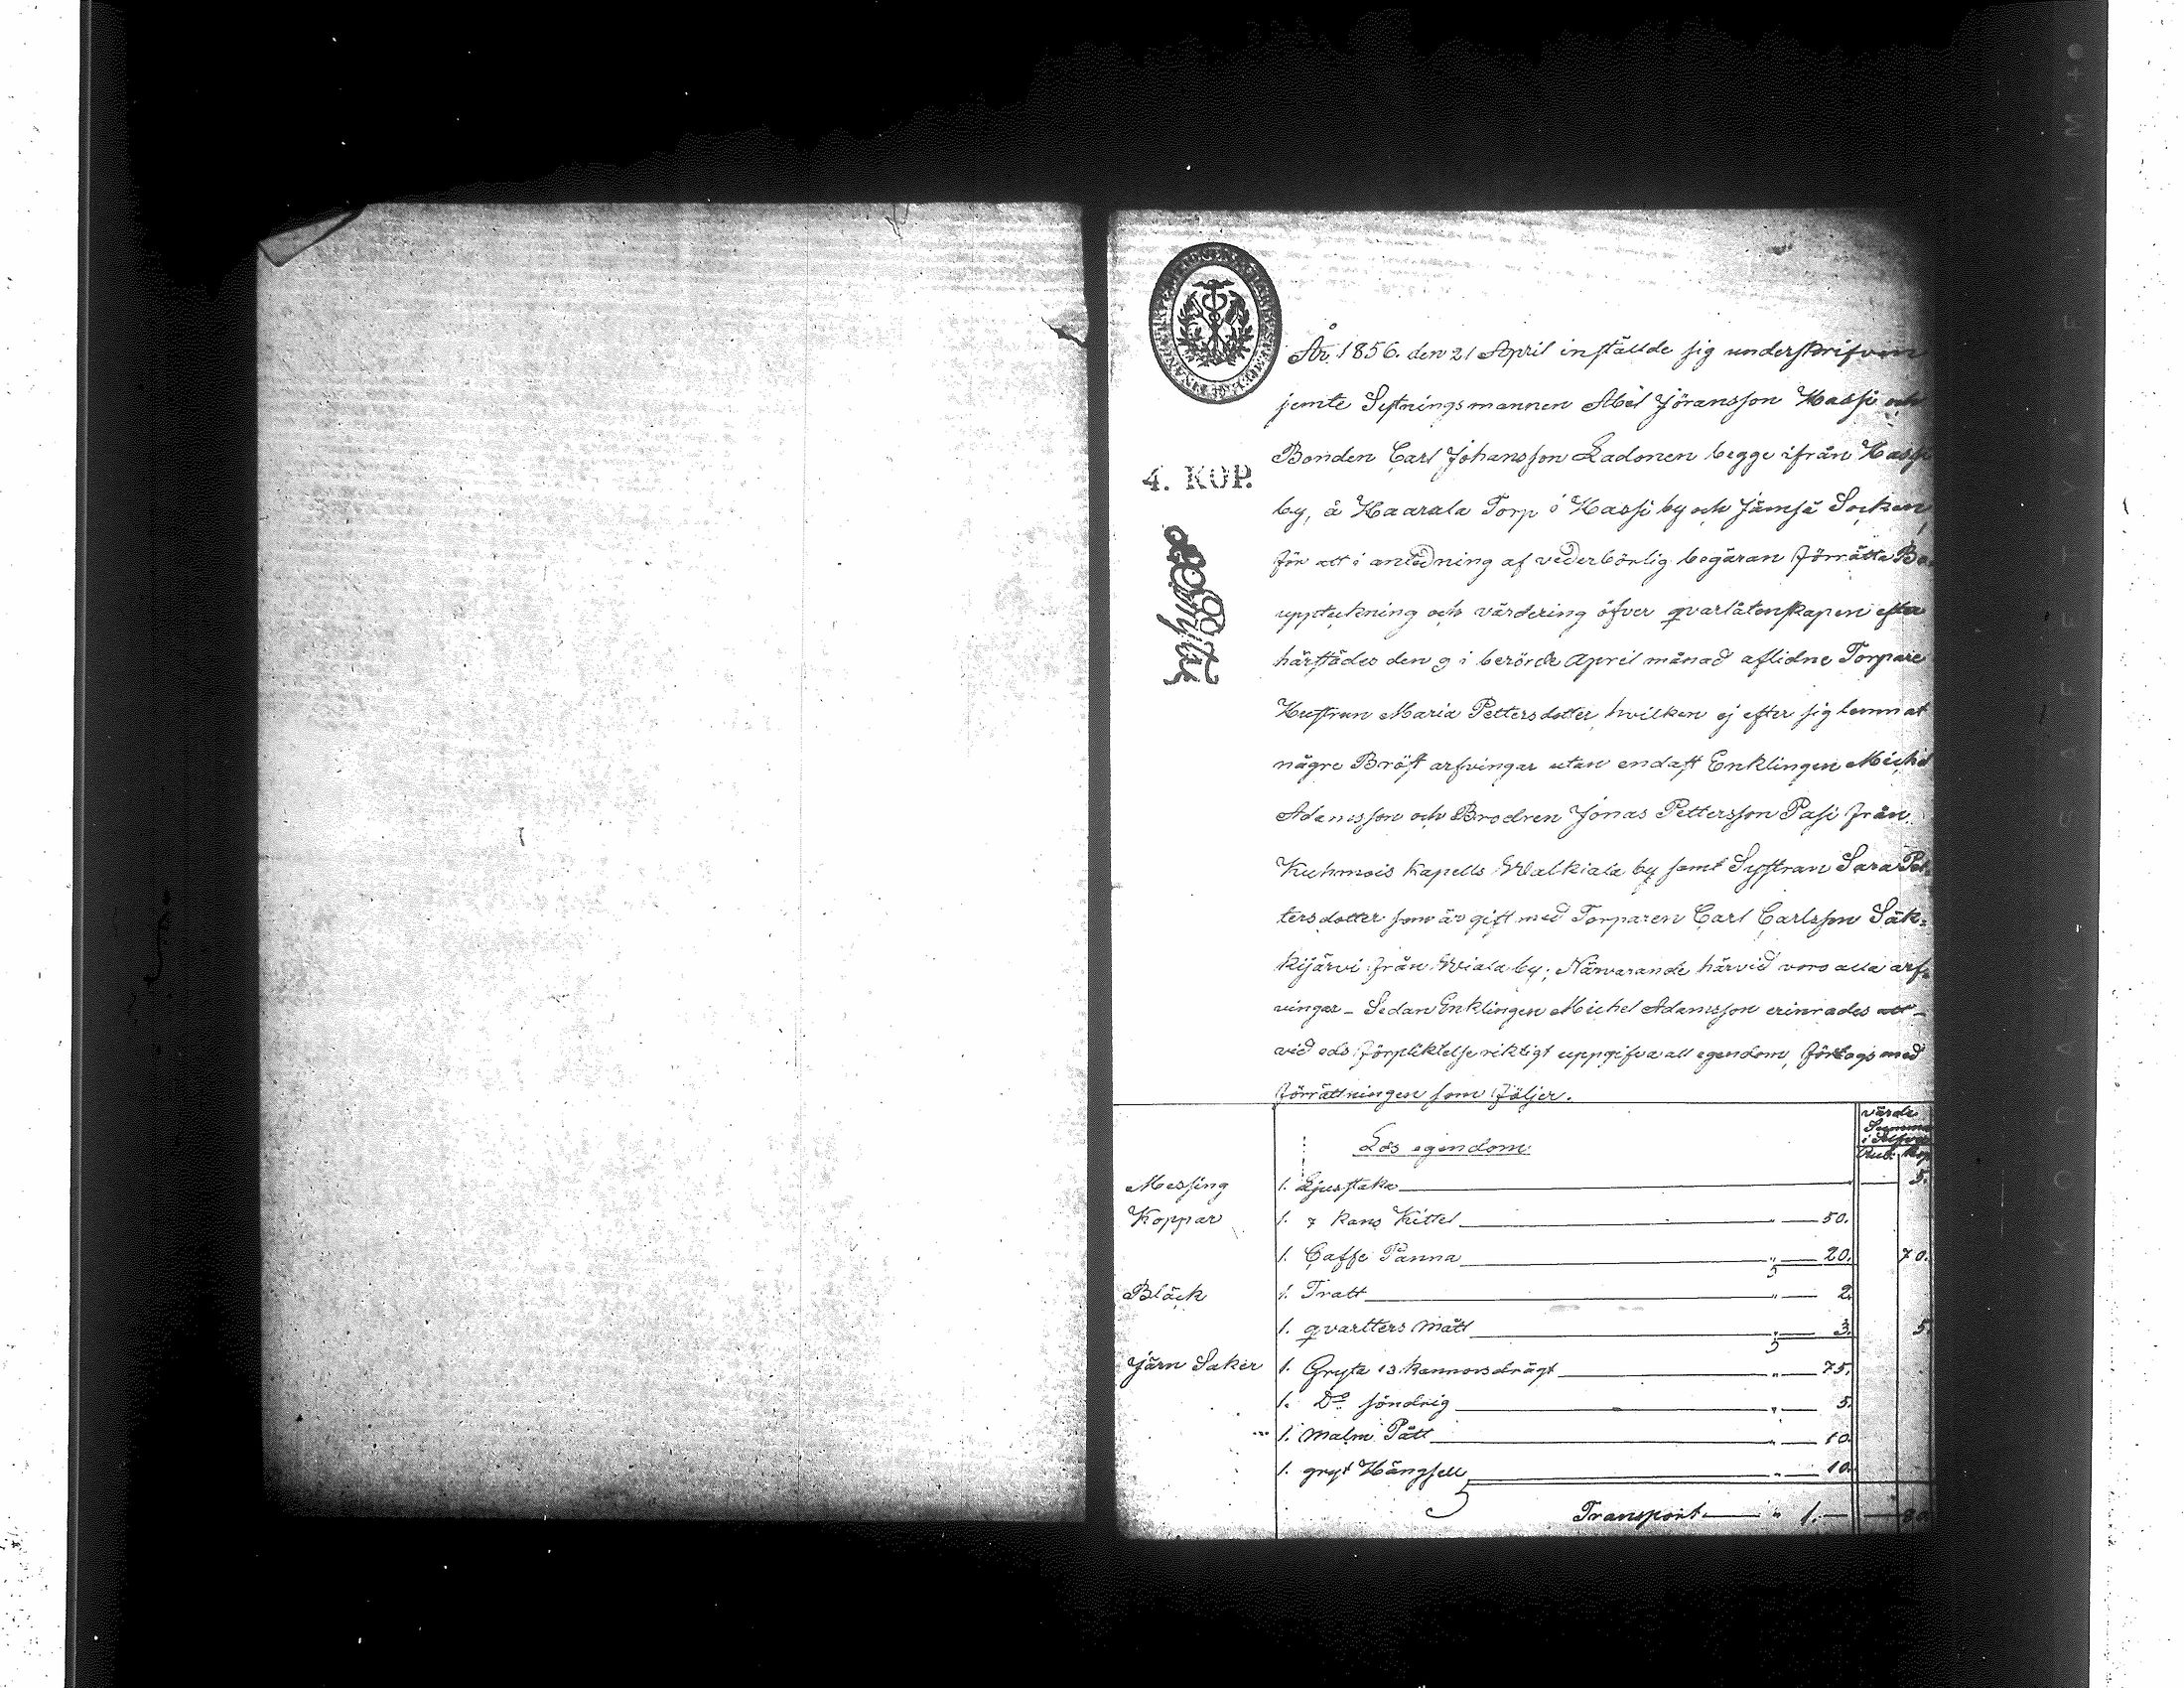 År 1856. den 21 April inställde sig underskrifven
jemte Sytningsmannen Abel Jöransson Hassi och
Bonden Carl Johansson Ladonen begge ifrån Hassi
4. KOP.
by, å Haarala Torp i Hassi by och Jämsä Socken,
för att i anledning af vederbörlig begäran förrätta Bo
uppteckning och värdering öfver qvarlåtenskapen efter
härstädes den 9 i berörde April månad aflidne Torpare
Hustrun Maria Pettersdotter, hvilken ej efter sig lemnat
några Bröst arfvingar utan endast Enklingen Michel
Adamsson och Brodren Jonas Pettersson Pasi från
Kuhmois Kapells Walkiala by samt Systran Sara Pet-
tersdotter som är gift med Torparen Carl Carlsson Säk=
kijärvi från Wiala by; Närvarande härvid voro alla arf=
vingar – Sedan Enklingen Michel Adamsson erinrades att
vid eds förpliktelse riktigt uppgifva all egendom, företogs med
förrättningen som följer.
värde
Summa
i Silfver
Lös egendom:
Rub. Kop
Messing 1. Ljusstaka 5.
Koppar 1. 7 kans Kittel " 50.
1. Caffe Panna " 20. 70.
Bläck 1. Tratt " 2.
1. qvartters mått " 3. 5.
Järn Saker 1. Gryta 13. kannorsdrägt " 75.
1. Do söndrig " 5.
1. Malm Pått " 10.
1. gryt Hängsell " 10.
Transport " 1. 80